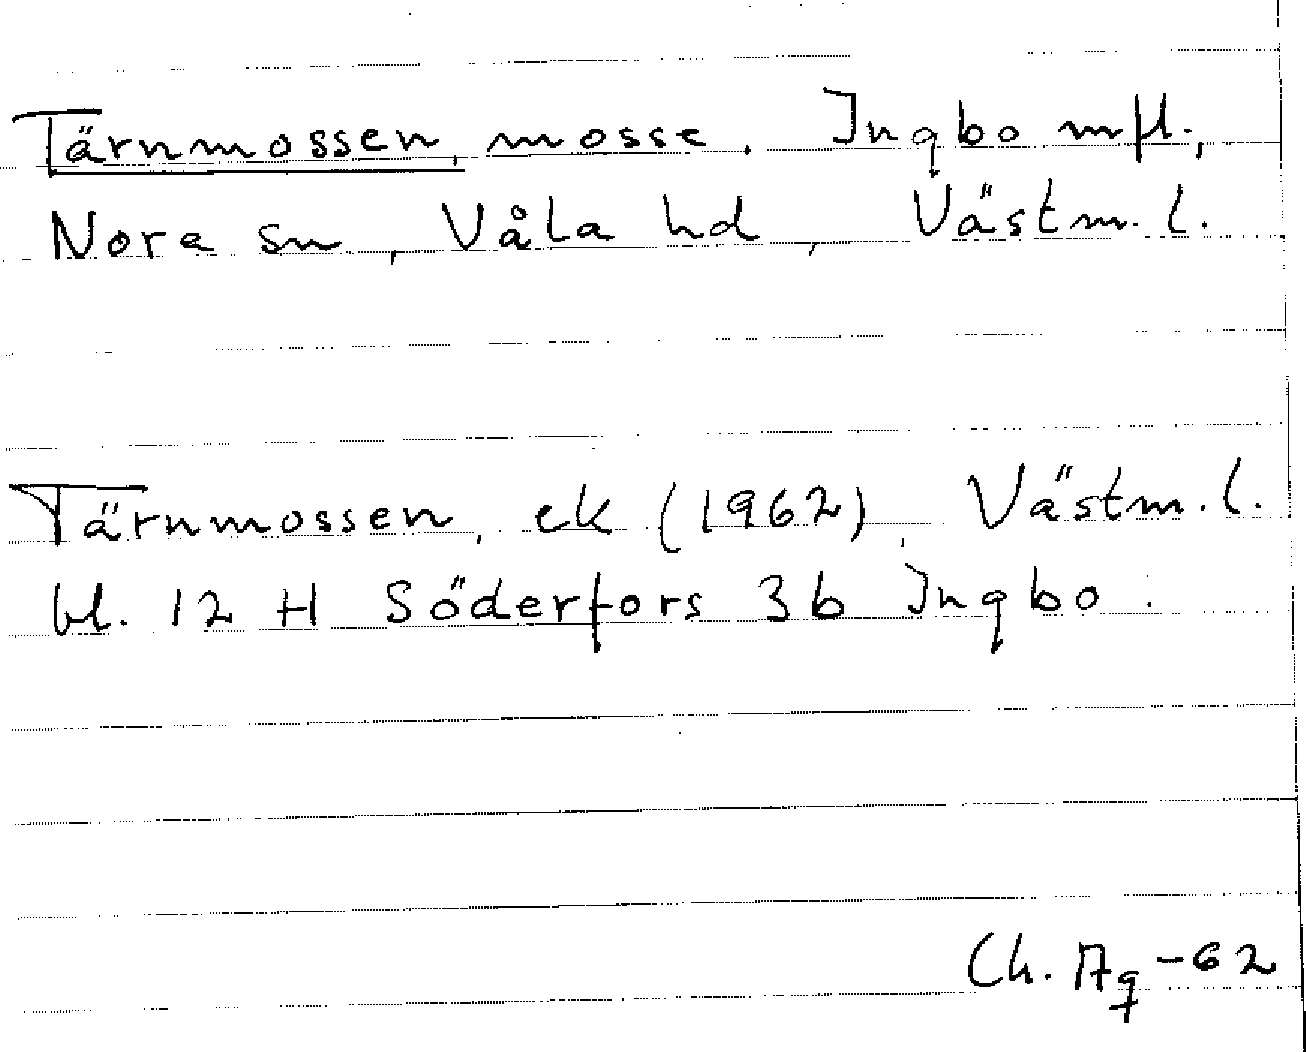 Tärnmossen, mosse, Ingbo mfl.,
Nora sn, Våla hd, Västm. l.
Tärnmossen, ek (1962), Västm. l.
bl. 12 H Söderfors 3b Ingbo.
Ch. Ag -62